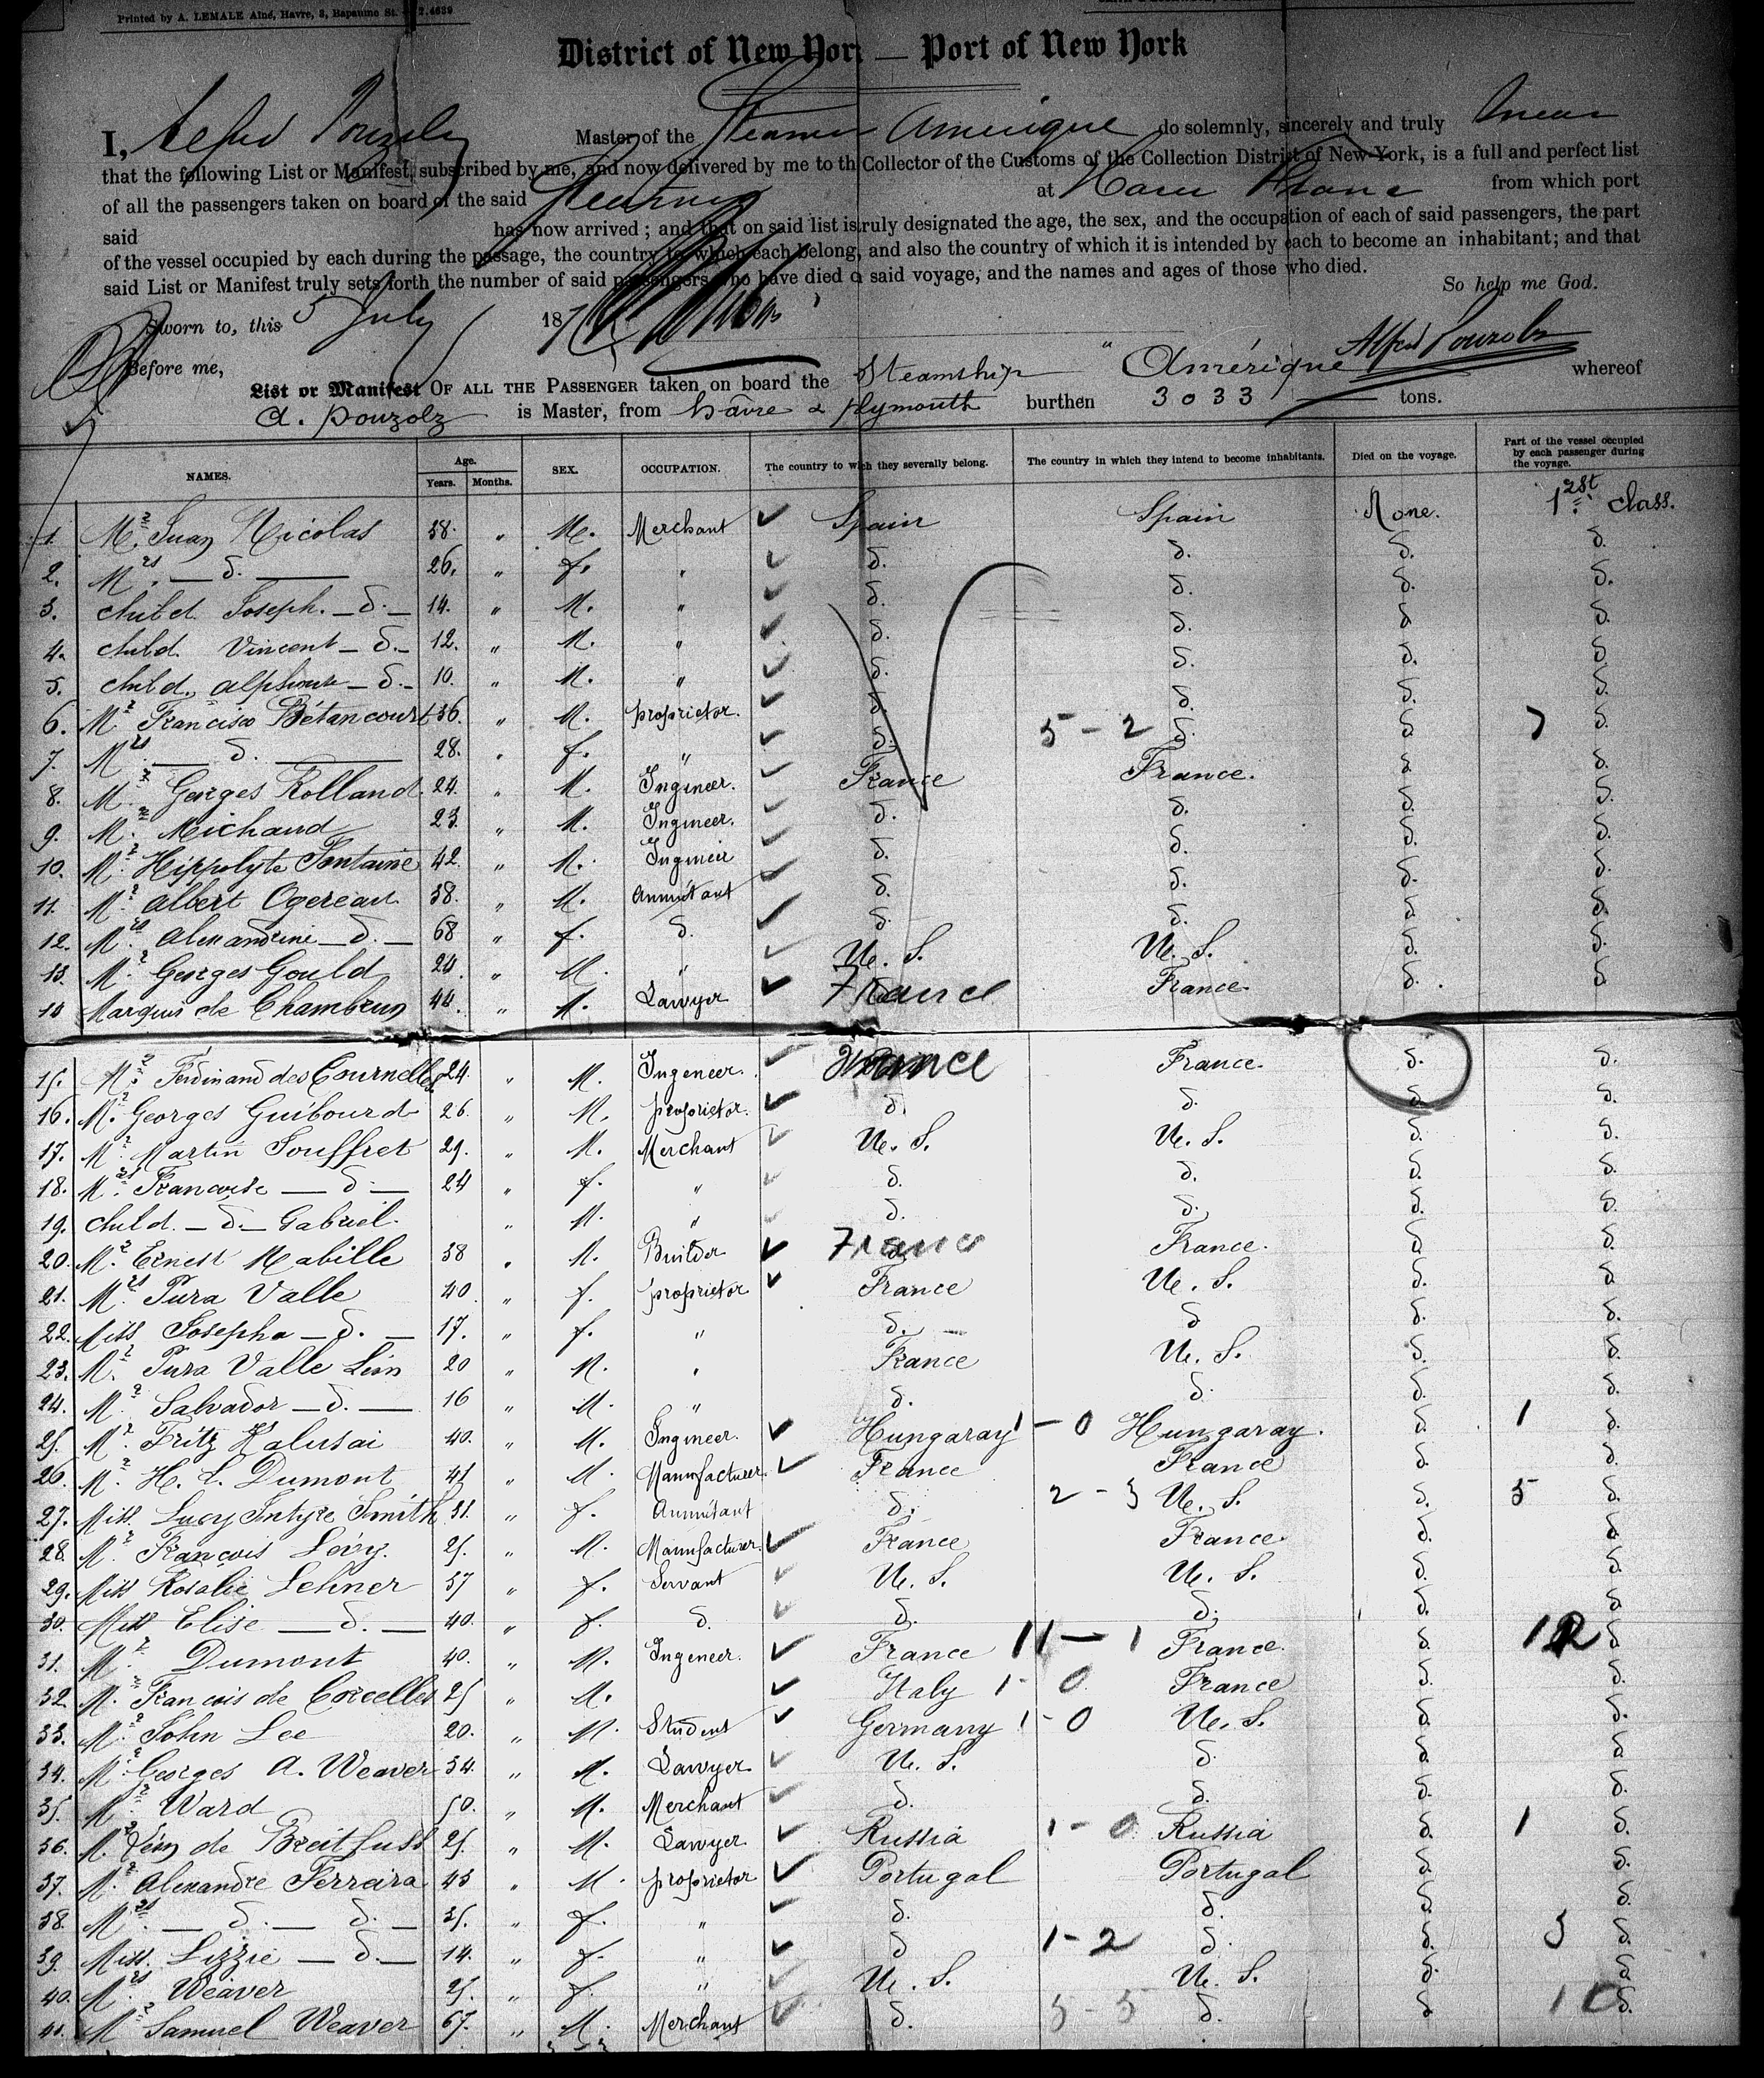 Printed by A. LEMALE Aîné, Havre, 3, Bapaume St. 7.4639
District of New York — Port of New York
I, Alfred Pouzolz Master of the Steamer Amérique do solemnly, sincerely and truly swear
that the following List or Manifest, subscribed by me, and now delivered by me to the Collector of the Customs of the Collection District of New-York, is a full and perfect list
of all the passengers taken on board of the said Steamer at Havre France from which port
said has now arrived ; and that on said list is truly designated the age, the sex, and the occupation of each of said passengers, the part
of the vessel occupied by each during the passage, the country to which each belong, and also the country of which it is intended by each to become an inhabitant; and that
said List or Manifest truly sets forth the number of said passengers who have died on said voyage, and the names and ages of those who died.
So help me God.
Sworn to, this 5 July 187
Before me, Alfred Pouzolz
List or Manifest OF ALL THE PASSENGER taken on board the Steamship " Amérique whereof
A. Pouzolz is Master, from hâvre & plymouth burthen 3033 tons.
NAMES. Age. Years. Months. SEX. OCCUPATION. The country to which they severally belong. The country in which they intend to become inhabitants. Died on the voyage. Part of the vessel occupied by each passenger during the voyage.
1. Mr. Juan Nicolas 38. " M. Merchant Spain Spain None. 1st class.
2. Mrs. — d. — 26. " f. " d. d. d. d.
3. child Joseph. — d. — 14. " M. " d. d. d. d.
4. child Vincent — d. — 12. " M. " d. d. d. d.
5. child. alphonse — d. — 10. " M. " d. d. d. d.
6. Mr. Francisco Bétancourt 36. " M. proprietor. d. d. d. d.
7. Mrs. — d. — 28. " f. " d. 5 - 2 d. d. 7 d.
8. Mr. Georges Rolland. 24. " M. Ingineer. France France. d. d.
9. Mr. Michaud 23. " M. Ingineer. d. d. d. d.
10. Mr. Hippolyte Fontaine 42. " M. Ingineir d. d. d. d.
11. Mr. Albert Ogereau 38. " M. Annuitant d. d. d. d.
12. Mrs. Alexandrine — d. — 68 " f. d. d. d. d. d.
13. Mr. Georges Gould 24. " M. " U. S. U. S. d. d.
14 Marquis de Chambrun 44. " M. Lawyer France France. d. d.
15. Mr. Ferdinand des Cournelles 24. " M. Ingeneer. France France. d. d.
16. Mr. Georges Guibourd 26. " M. proprietor. d. d. d. d.
17. Mr. Martin Souffret 29. " M. Merchant U. S. U. S. d. d.
18. Mrs. Francoise — d — 24 " f. " d. d. d. d.
19. child. — d. — Gabriel. " M. " d. d. d. d.
20. Mr. Ernest Mabille 38 " M. Builder France France. d. d.
21. Mrs. Pura Valle 40. " f. proprietor France U. S. d. d.
22. Miss Josepha — d. — 17. " f. " d. d d. d.
23. Mr. Pura Valle Léon 20 " M. " France U. S. d. d.
24. Mr. Salvador — d. — 16 " M. " d. d. d. d.
25. Mr. Fritz Kalusai 40. " M. Ingineer. Hungaray 1 - 0 Hungaray. d. 1 d.
26. Mr. H. L. Dumont 41 " M. Manufacturer. France France d. d.
27. Miss. Lucy Intyre Smith 31. " f. Annuitant d. 2 - 3 U. S. d. 5 d.
28. Mr. François Lévy. 25. " M. Manufacturer. France France d. d.
29. Miss Rosalie Lehner 37 " f. Servant U. S. U. S. d. d.
30. Miss Elise — d. — 40. " f. d. d. d. d. d.
31. Mr. Dumont 40. " M. Ingeneer. France 11 - 1 France. d. 12 d.
32. Mr. Francois de Corcelles 25 " M. Italy 1 - 0 France d. d.
33. Mr. John Lee 20. " M. Student Germany 1 - 0 U. S. d. d.
34. Mr. Georges A. Weaver 34. " M. Lawyer U. S. d. d. d.
35. Mr. Ward 50. " M. Merchant d. d. d. d.
36. Mr. Léon de Breitfuss 25. " M. Lawyer Russia 1 - 0 Russia d. 1 d.
37. Mr. Alexandre Ferreira 43 " M. proprietor Portugal Portugal d. d.
38. Mrs. — d. — d. — 35. " f. " d. d. d. d.
39. Miss. Lizzie — d. — 14. " f. " d 1 - 2 d. d. 3 d.
40. Mrs. Weaver 25. " f. " U. S. U. S. d. d
41. Mr. Samuel Weaver 67. " M. Merchant d. 5 - 5 d. d 10 d.